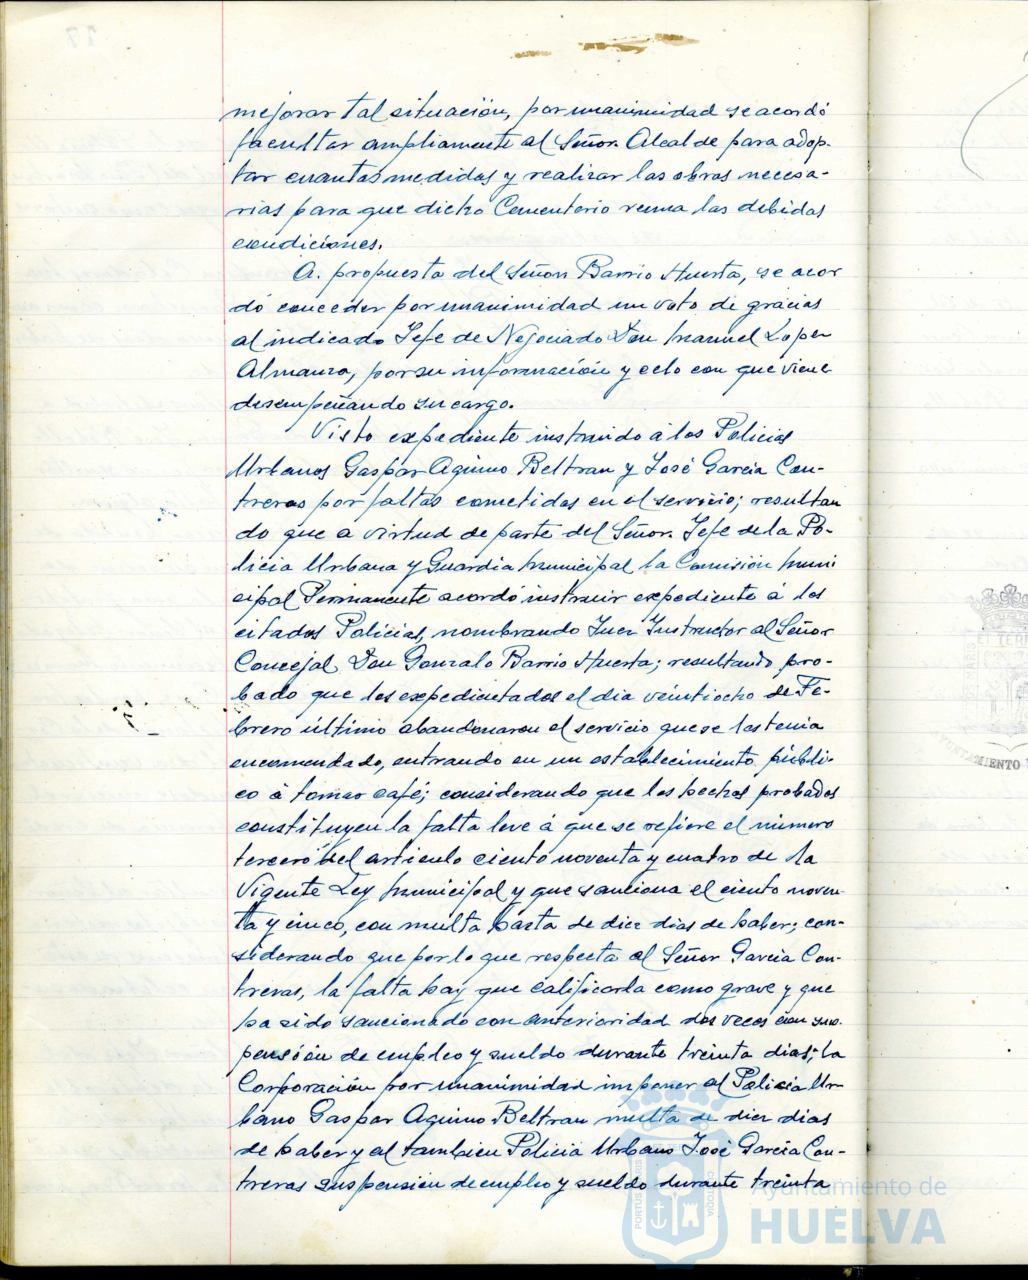 mejorar tal situación, por unanimidad se acordó
facultar ampliamente al Señor Alcalde para adop-
tar cuantas medidas y realizar las obras necesa-
rias para que dicho Cementerio reuna las debidas
condiciones.
A propuesta del Señor Barrio Huerta, se acor
dó conceder por unanimidad un voto de gracias
al indicado Jefe de Negociado Don Manuel Lopez
Almanza, por su información y celo con que viene
desempeñando su cargo.
Visto expediente instruido á los Policias
Urbanos Gaspar Aquino Beltran y José Garcia Con-
treras por faltas cometidas en el servicio; resultan
do que a virtud de parte del Señor Jefe de la Po-
licia Urbana y Guardia Municipal la Comisión Muni
cipal Permanente acordó instruir expediente á los
citados Policias, nombrando Juez Instructor al Señor
Concejal Don Gonzalo Barrio Huerta; resultando pro-
bado que los expedientados el dia veintiocho de Fe-
brero último abandonaron el servicio que se les tenia
encomendado, entrando en un establecimiento públi-
co á tomar café; considerando que los hechos probados
constituyen la falta leve á que se refiere el número
tercero del articulo ciento noventa y cuatro de la
Vigente Ley Municipal y que sanciona el ciento noven-
ta y cinco, con multa hasta de diez dias de haber; con-
siderando que por lo que respecta al Señor Garcia Con-
treras, la falta hay que calificarla como grave y que
ha sido sancionado con anterioridad dos veces con sus-
pensión de empleo y sueldo durante treinta dias; la
Corporación por unanimidad imponer al Policia Ur
bano Gaspar Aquino Beltran multa de diez dias
de haber y al tambien Policia Urbano José Garcia Con-
treras suspensión de empleo y sueldo durante treinta
Ayuntamiento de
HUELVA